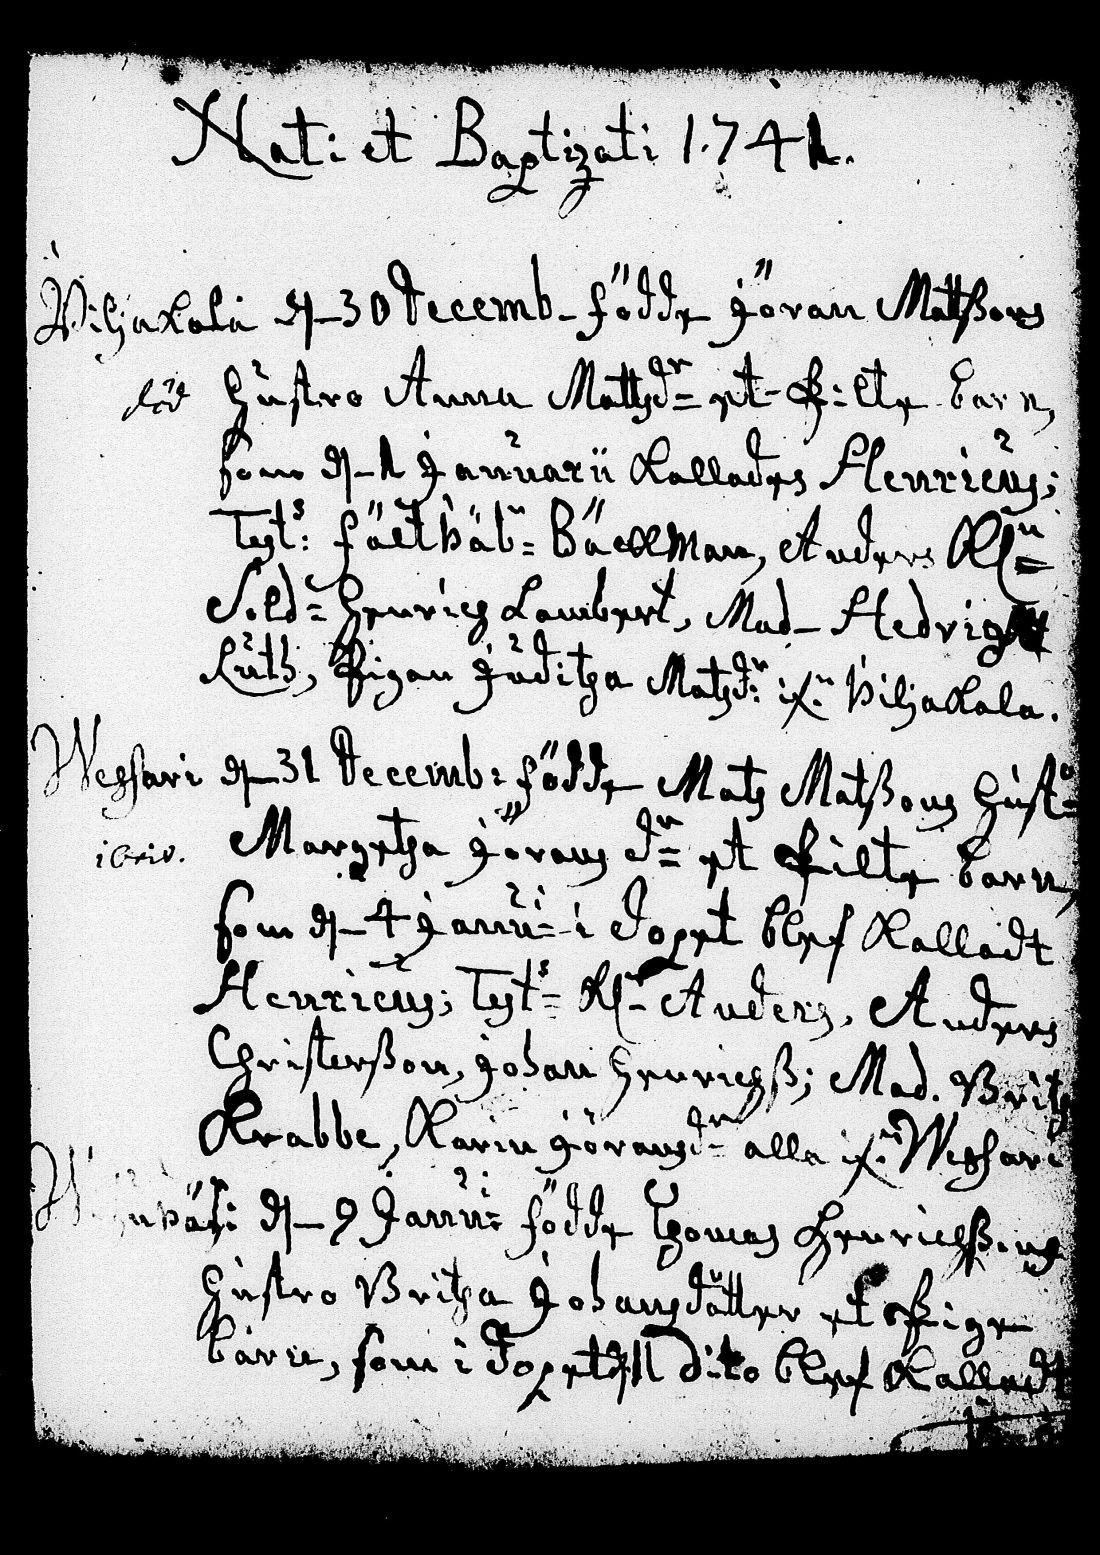 Nati et Baptizati 1.741.
Wiljakala d. 30 Decemb. födde Jöran Matßons
död hustro Anna Mattsdr et Pilte barn,
som d. 1 Januarii kallades Henricus;
Test: fält Bäckman, Anders Kl=
Sold= Henrich Lambert, Mad. Hedvig
Luth, Pigan Juditha Matsdr ifr. Viljakala.
Wessari d. 31 Decemb: födde Mats Matßons Hust=
Margetha Jörans dr= et Pilte barn,
som d. 4 Janu= i dopet blef kalladt
Henricus; Test= Kl. Anders, Anders
Christerßon, Johan Henrichß; Mad. Brita
Krabbe, Karin Jöransdr= alla ifr. Wessari
d. 9 Janu: födde Thomas Henrichßons
hustro Britha Johansdotter et Pige
barn, som i Dopet d. 11 dito blef kalladt